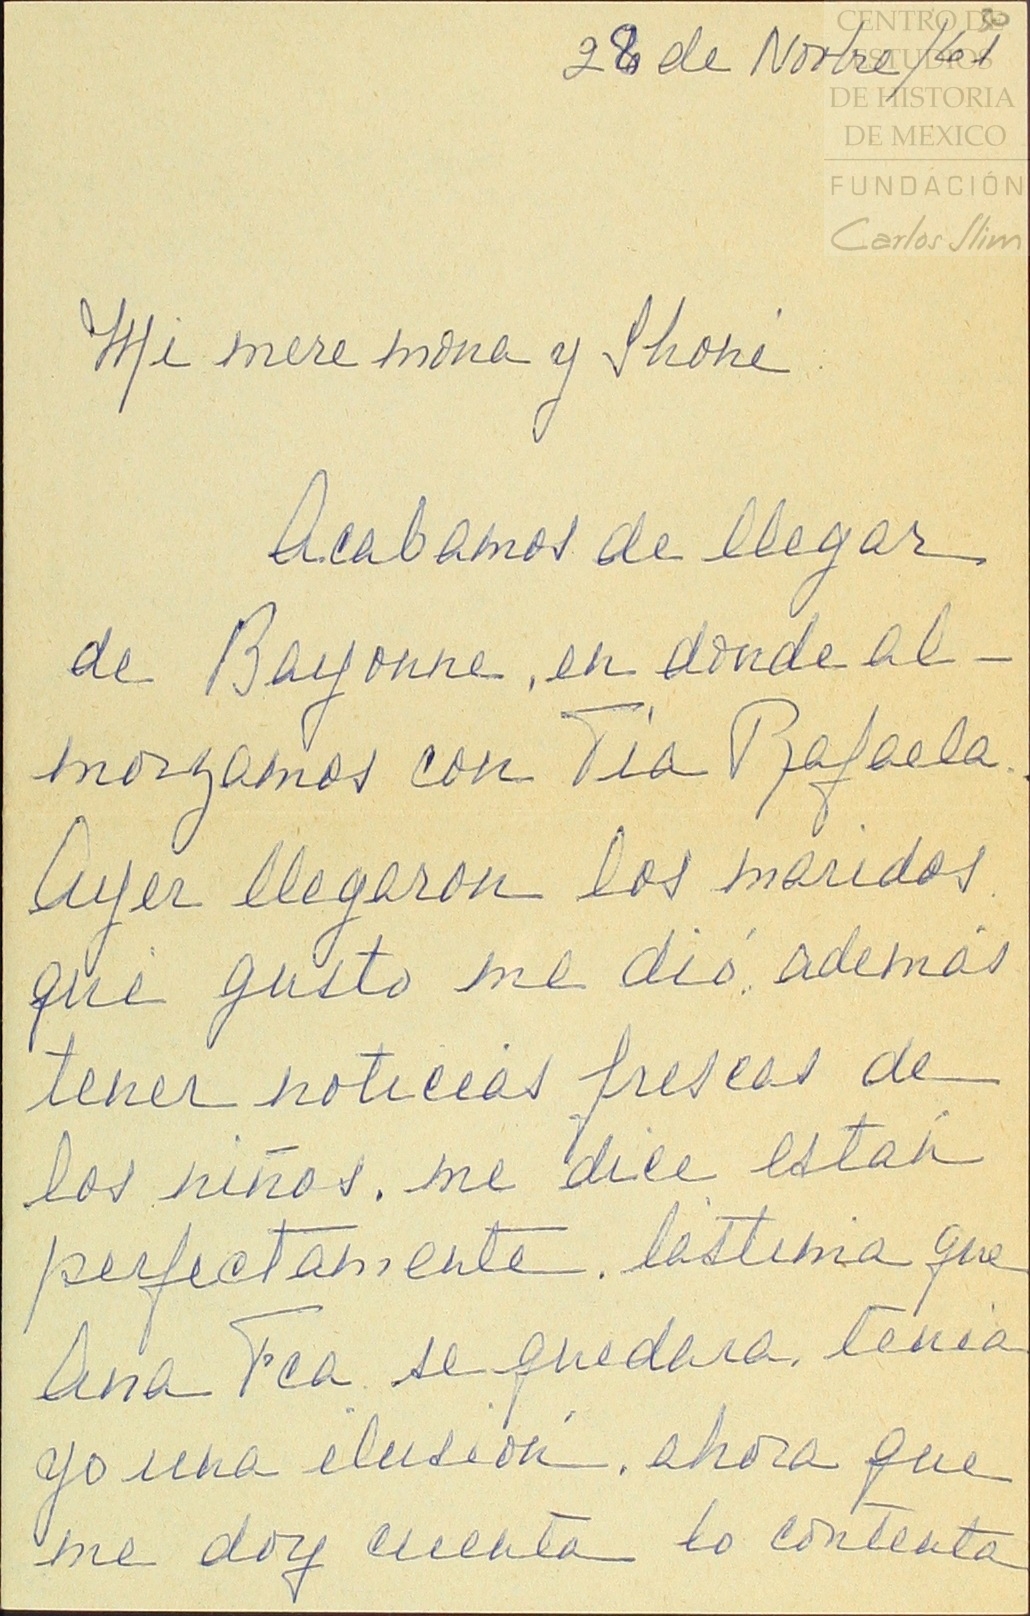 28 de Novbre/61
CENTRO DE
ESTUDIOS
DE HISTORIA
DE MEXICO
FUNDACIÓN
Carlos Slim
Mi mere mona y Shoné
Acabamos de llegar
de Bayonne, en donde al-
morzamos con Tía Rafaela.
Ayer llegaron los maridos
qué gusto me dió, además
tener noticias frescas de
los niños. me dice están
perfectamente. lástima que
Ana Fca se quedara. tenía
yo una ilusión. ahora que
me doy cuenta lo contenta